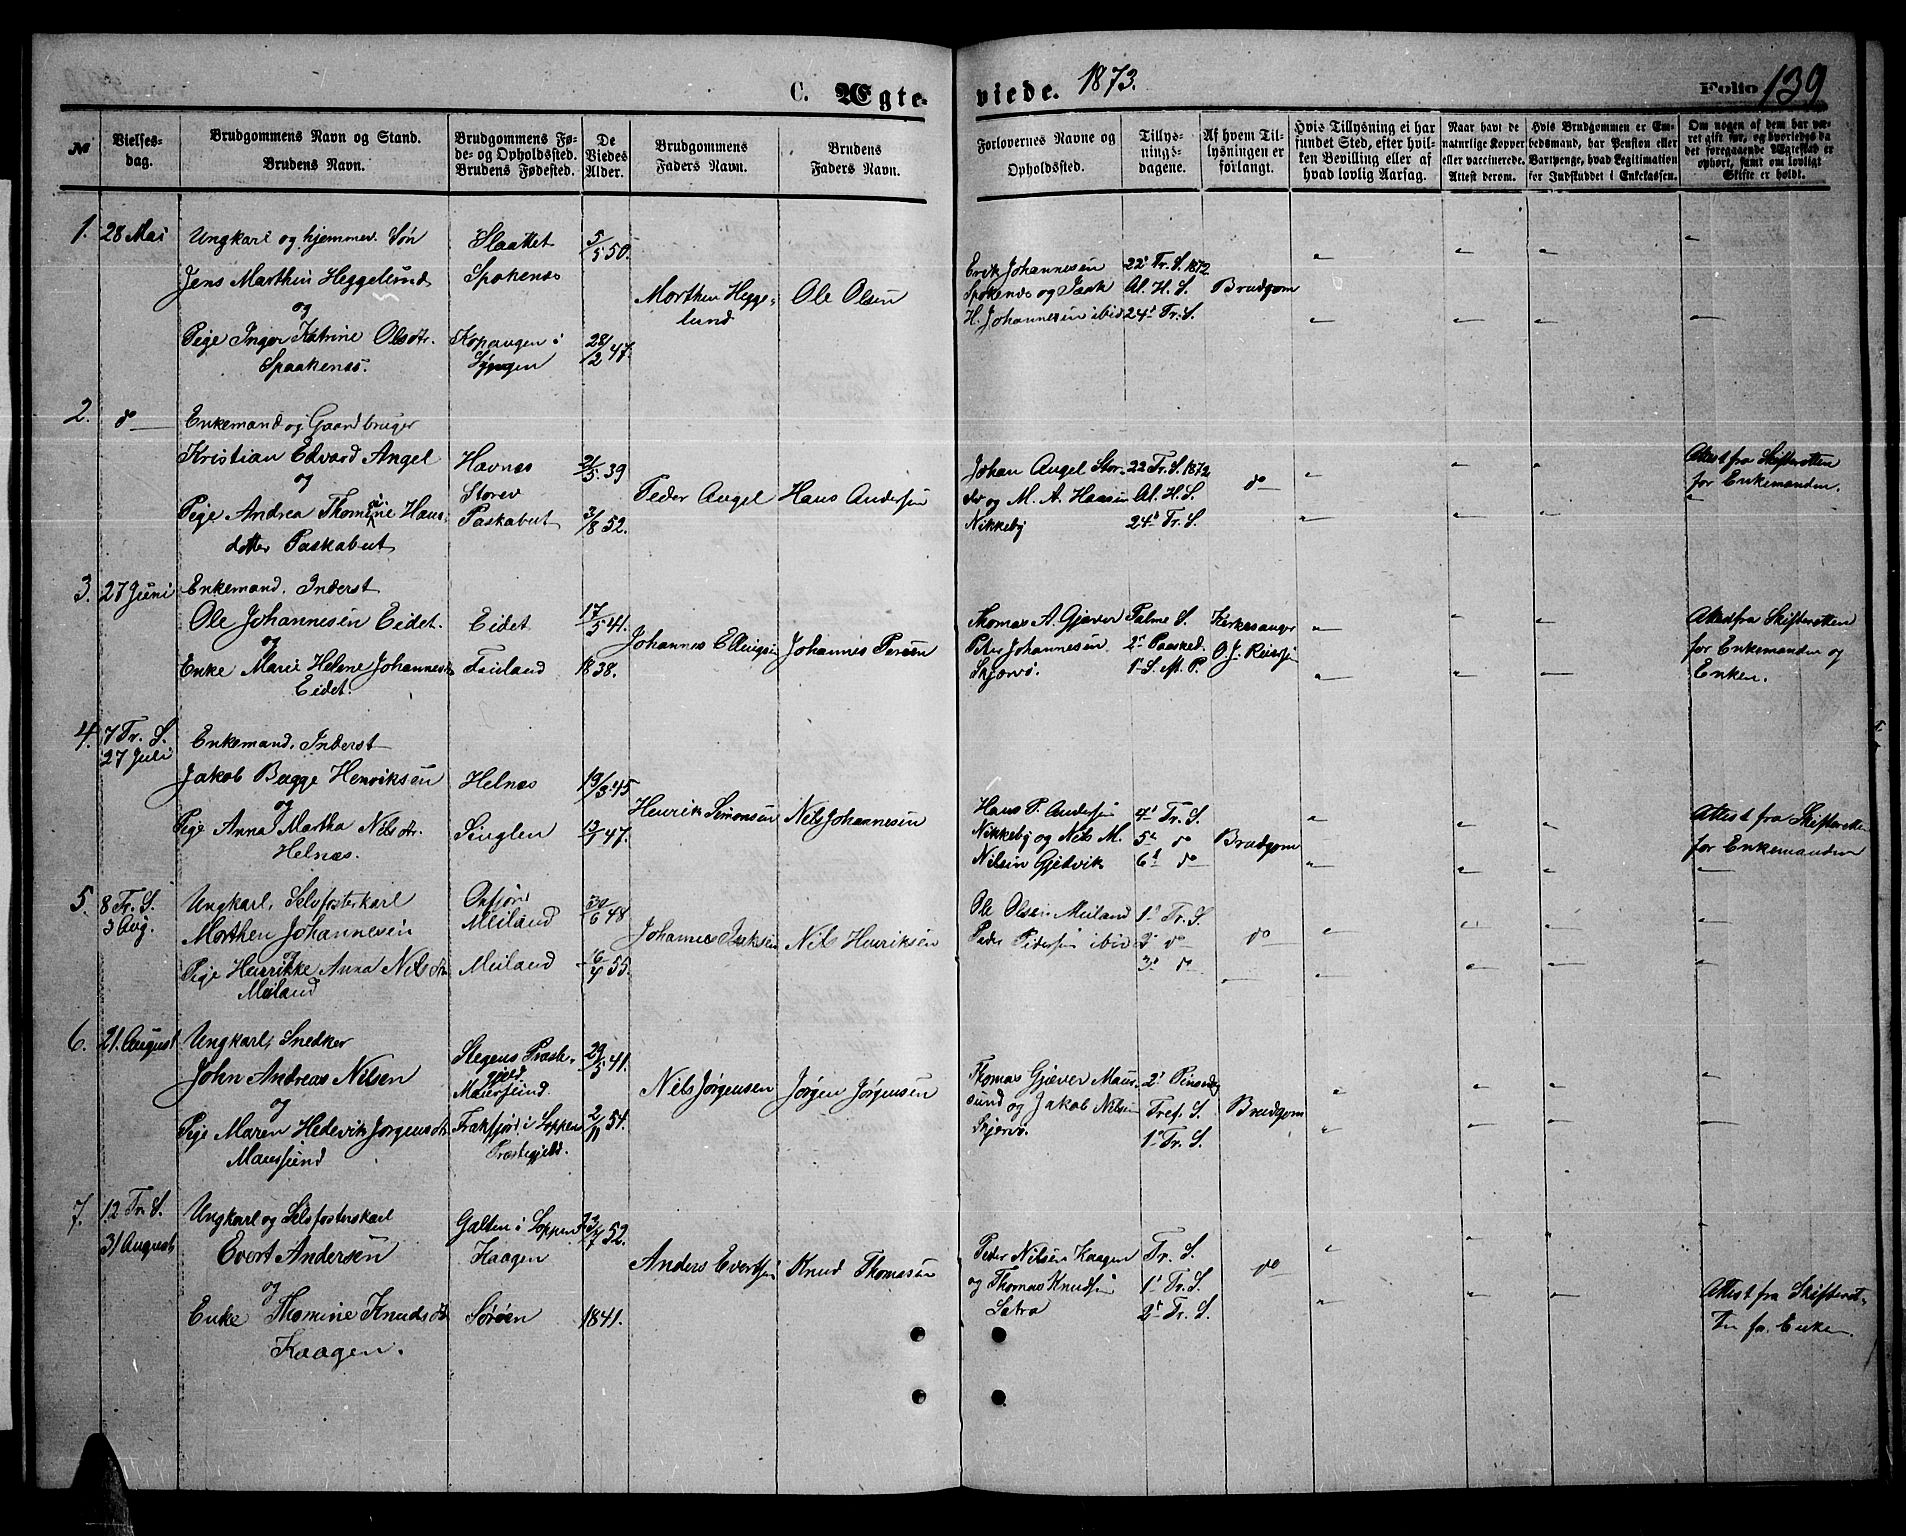 C. Ægte- viede. 1873. Folio 139
№
Vielses-
dag.
Brudgommens Navn og Stand.
Brudens Navn.
Brudgommens Fø-
de- og Opholdssted.
Brudens Fødested.
De
Viedes
Alder.
Brudgommens
Faders Navn.
Brudens
Faders Navn.
Forlovernes Navne og
Opholdssted.
Tillys-
nings-
dagene.
Af hvem Til-
lysningen er
forlangt.
Hvis Tillysning ei har
fundet Sted, efter hvil-
ken Bevilling eller af
hvad lovlig Aarsag.
Naar havt de
naturlige Kopper
eller vaccinerede.
Attest derom.
Hvis Brudgommen er Em-
bedsmand, har Pension eller
Vartpenge, hvad Legitimation
for Indskuddet i Enkekassen.
Om nogen af dem har væ-
ret gift før, og hvorledes da
det foregaaende Ægteskab er
ophørt, samt om lovligt
Skifte er holdt.
1. 28 Mai
Ungkarl og hjemmev. Søn
Jens Marthin Heggelund
og
Pige Inger Katrine Olsdtr.
Spaakenes.
Slaattet
Spokenes
Kopangen i
Lyngen
5/5 50.
28/2 47.
Morthen Hegge-
lund
Ole Olsen
Erik Johannesen
Spokenes og Isak
H. Johannesen ibid
22' Tr. S. 1872
Al. H. S.
24' Tr. S.
Brudgom
2. do
Enkemand og Gaardbruger
Kristian Edvard Angel
og
Pige Andrea Thomine Hans-
dotter Paskabut
Havnæs
Storev
Paskabut
21/5 39
3/8 52.
Peder Angel
Hans Andersen
Johan Angel Stor-
ev og M. A. Hansen
Nikkeby
22 Tr. S. 1872
Al. H. S.
24' Tr. S.
do
Attest fra Skifteretten
for Enkemanden.
3. 27 Juni
Enkemand. Inderst
Ole Johannesen Eidet.
og
Enke Marie Helene Johannesdtr
Eidet.
Eidet
Finland
17/5 41.
1838.
Johannes Ellingsen
Johannes Persen
Thomas A. Gjæver
Peter Johannesen
Skjervø.
Palme S.
2' Paasked.
1' S. M. P.
Kirkesanger
O. J. Reiersen
Attest fra Skifteretten
for Enkemanden og
Enken.
4. 7 Tr. S.
27 Juli
Enkemand. Inderst
Jakob Bugge Henriksen
og
Pige Anna Martha Nilsdtr.
Helnæs.
Helnæs
Singlen
19/3 45
12/7 47.
Henrik Simonsen
Nils Johannesen
Hans P. Andersen
Nikkeby og Nils M.
Nilsen Gjedvik
4' Tr. S.
5' do
6' do
Brudgom
Attest fra Skifteretten
for Enkemanden
5. 8 Tr. S.
3 Aug.
Ungkarl, Selvfosterkarl
Morthen Johannesen
og
Pige Henrikke Anna Nilsdtr
Meiland
Oxfjord
Meiland
Meiland
30/6 48
6/4 55.
Johannes Isaksen
Nils Henriksen
Ole Olsen Meiland
Peder Pedersen ibid
1' Tr. S.
2' do
3' do
do
6. 21. August
Ungkarl, Snedker
John Andreas Nilsen
og
Pige Maren Hedevik Jørgensdtr
Maursund
Stegens Præste-
gjeld
Maursund.
Frakfjord i Loppen
Præstegjeld.
29/5 41.
2/11 54.
Nils Jørgensen
Jørgen Jørgensen
Thomas Gjæver Maur-
sund og Jakob Nilsen
Skjervø.
2' Pinsedag
Tref. S.
1' Tr. S.
Brudgom
7. 12 Tr. S.
31 August
Ungkarl og Selvfosterkarl
Evert Andersen
og
Enke Thomine Knudsdtr
Kaagen.
Galten i Loppen
Kaagen
Sørøen
23/7 52.
1841.
Anders Evertsen
Knud Thomasen
Peder Nilsen Kaagen
og Thomas Knudsen
Satra
Tr. S.
1' Tr. S.
2' Tr. S.
do
Attest fra Skifteret-
ten for Enken.